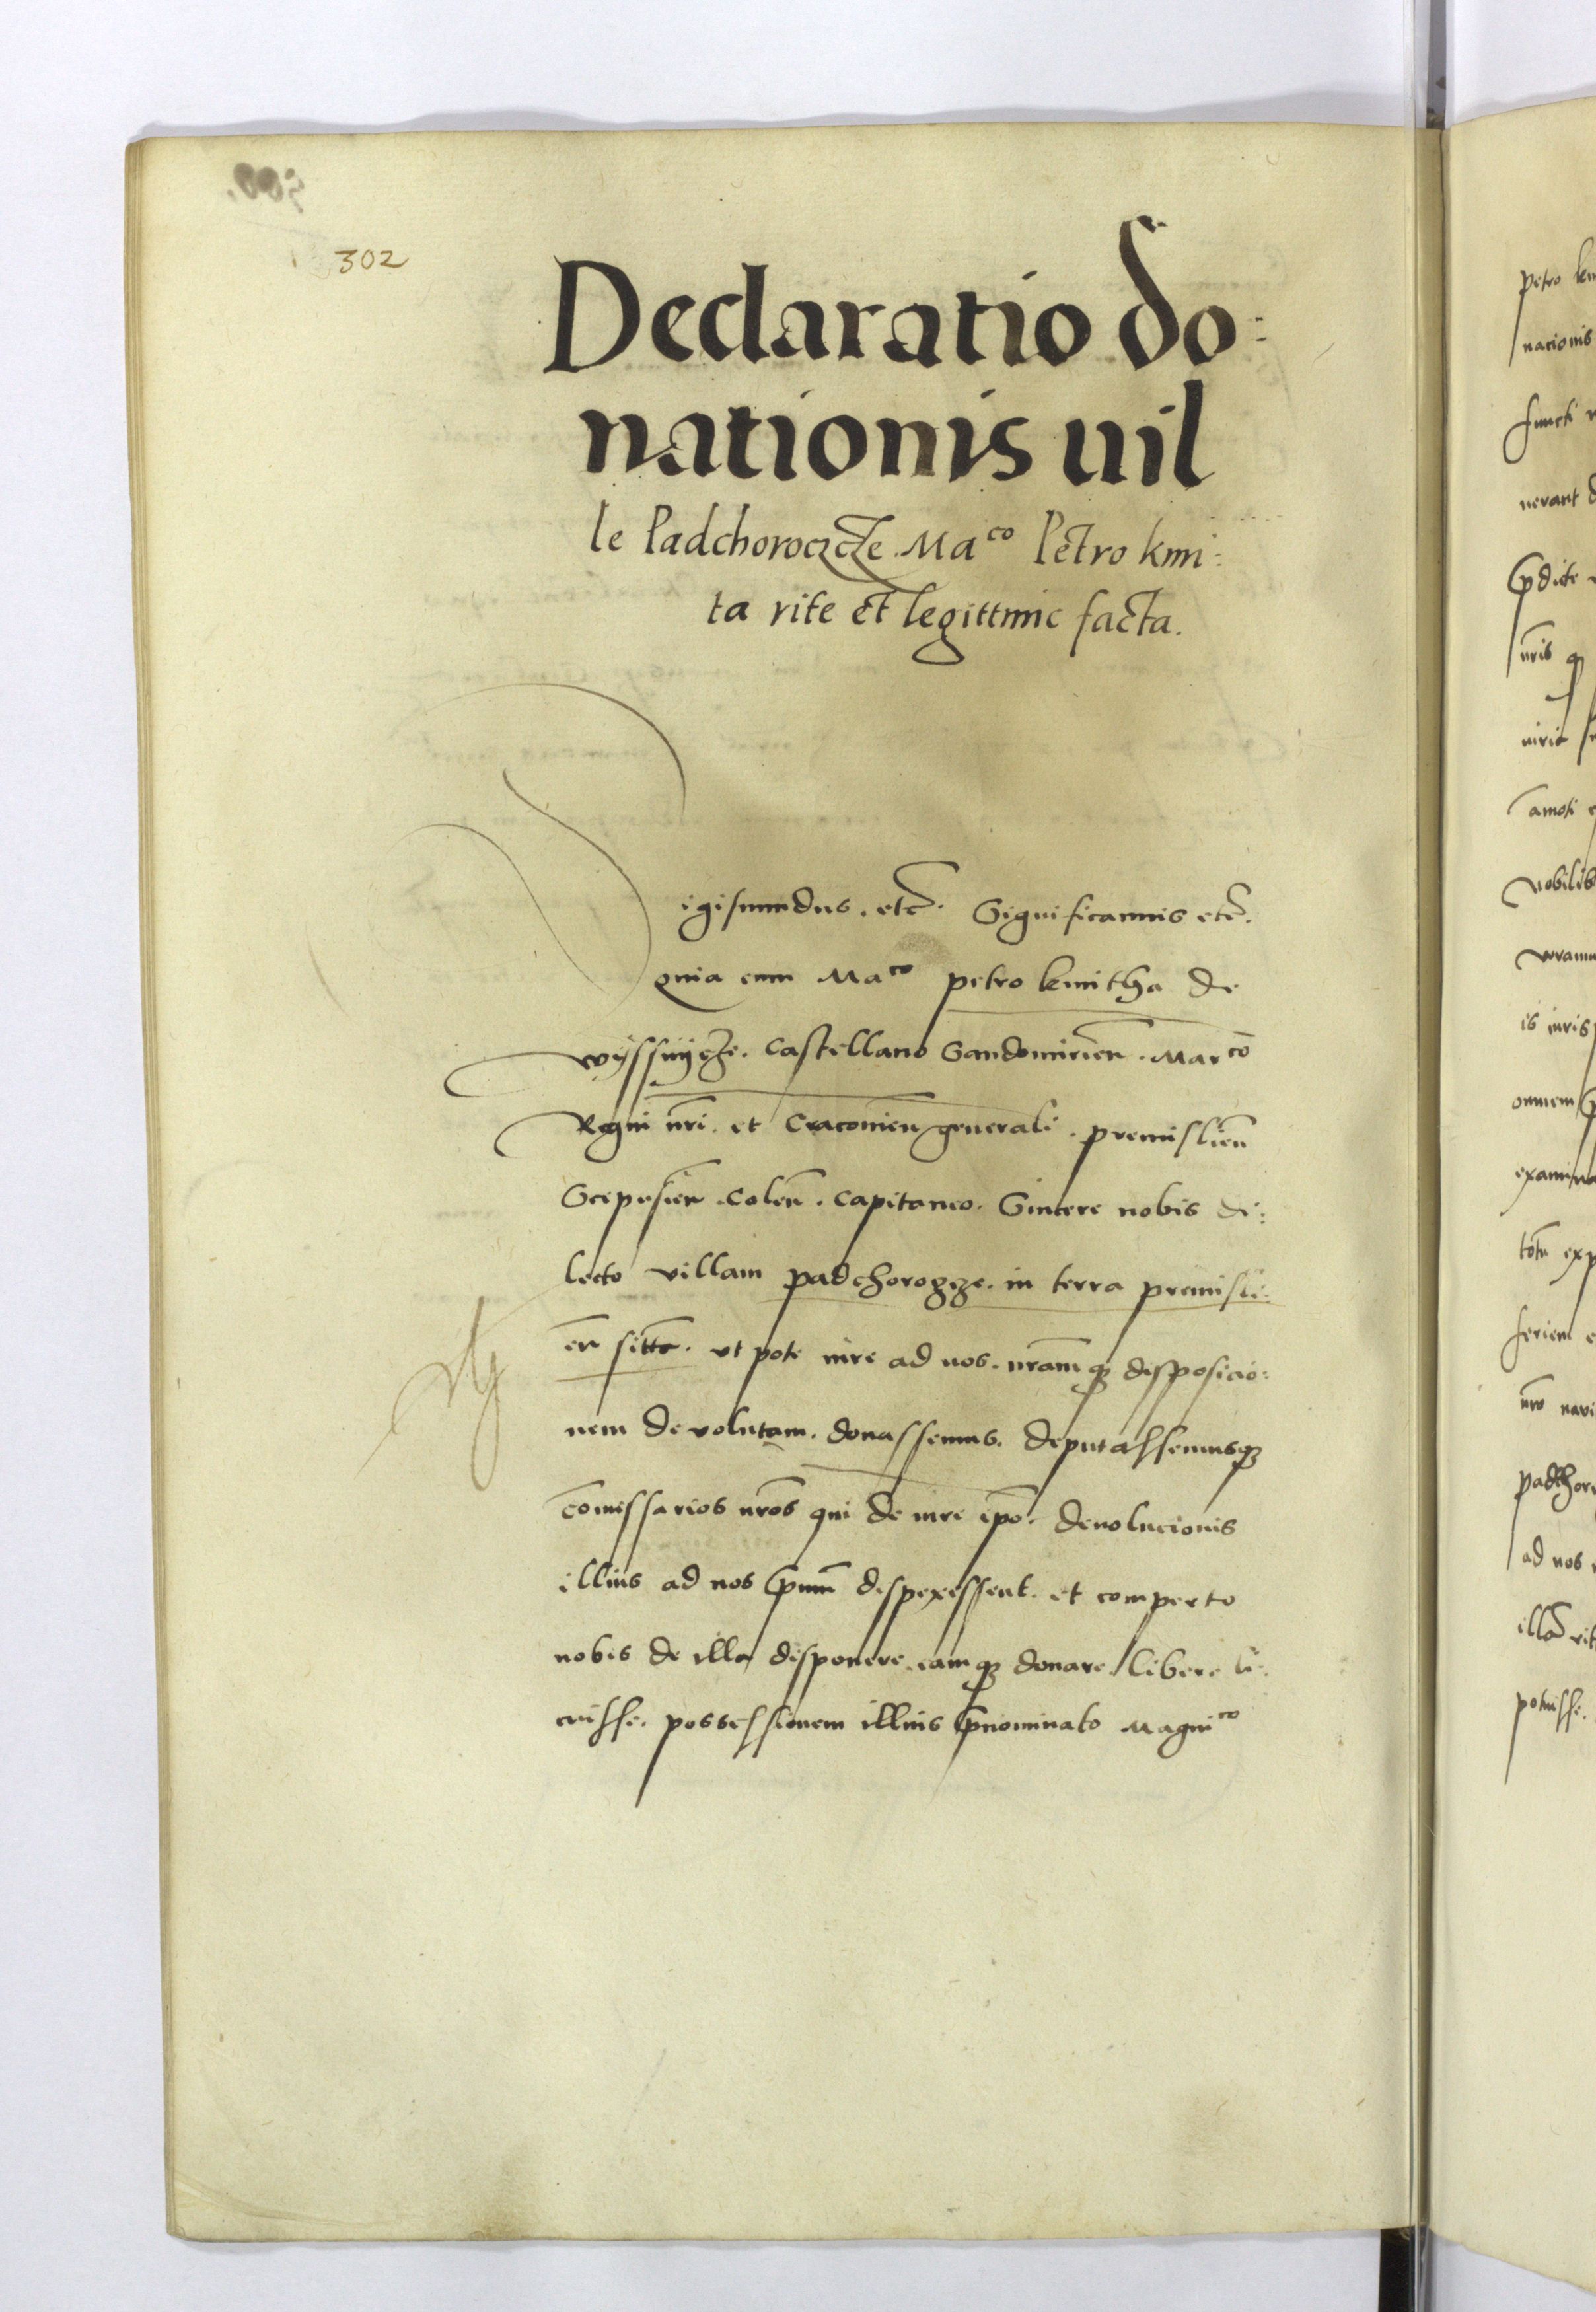 302
Declaratio do:
nationis uil
le Padchoroczcze Ma^co Petro kmi:
ta rite et legittime facta.
igismundus. etc. Significamus etc.
quia cum Ma^co petro kmitha de
wyssnycze. Castellano Sandomirien. Mar^co
Regni nri. et Cracouien generali. premislien
Scepusien. Colen. Capitaneo. Sincere nobis di:
lecto villam padchorozcze. in terra premisli:
en sitta. vt pote iure ad nos. nramq disposicio:
nem devolutam. donassemus. deputassemusq
comissarios nros qui de iure ipo. devolucionis
illius ad nos pmu despexissent. et comperto
nobis de illa disponere. eamq donare libere li:
cuisse. possessionem illius pnominato Magni^co
petro
nacionis
functi
nerant
pdicte
nris q
amoti
nobiles
is iuris
omnem
examina
feriem
nro
ad nos
potuisse.